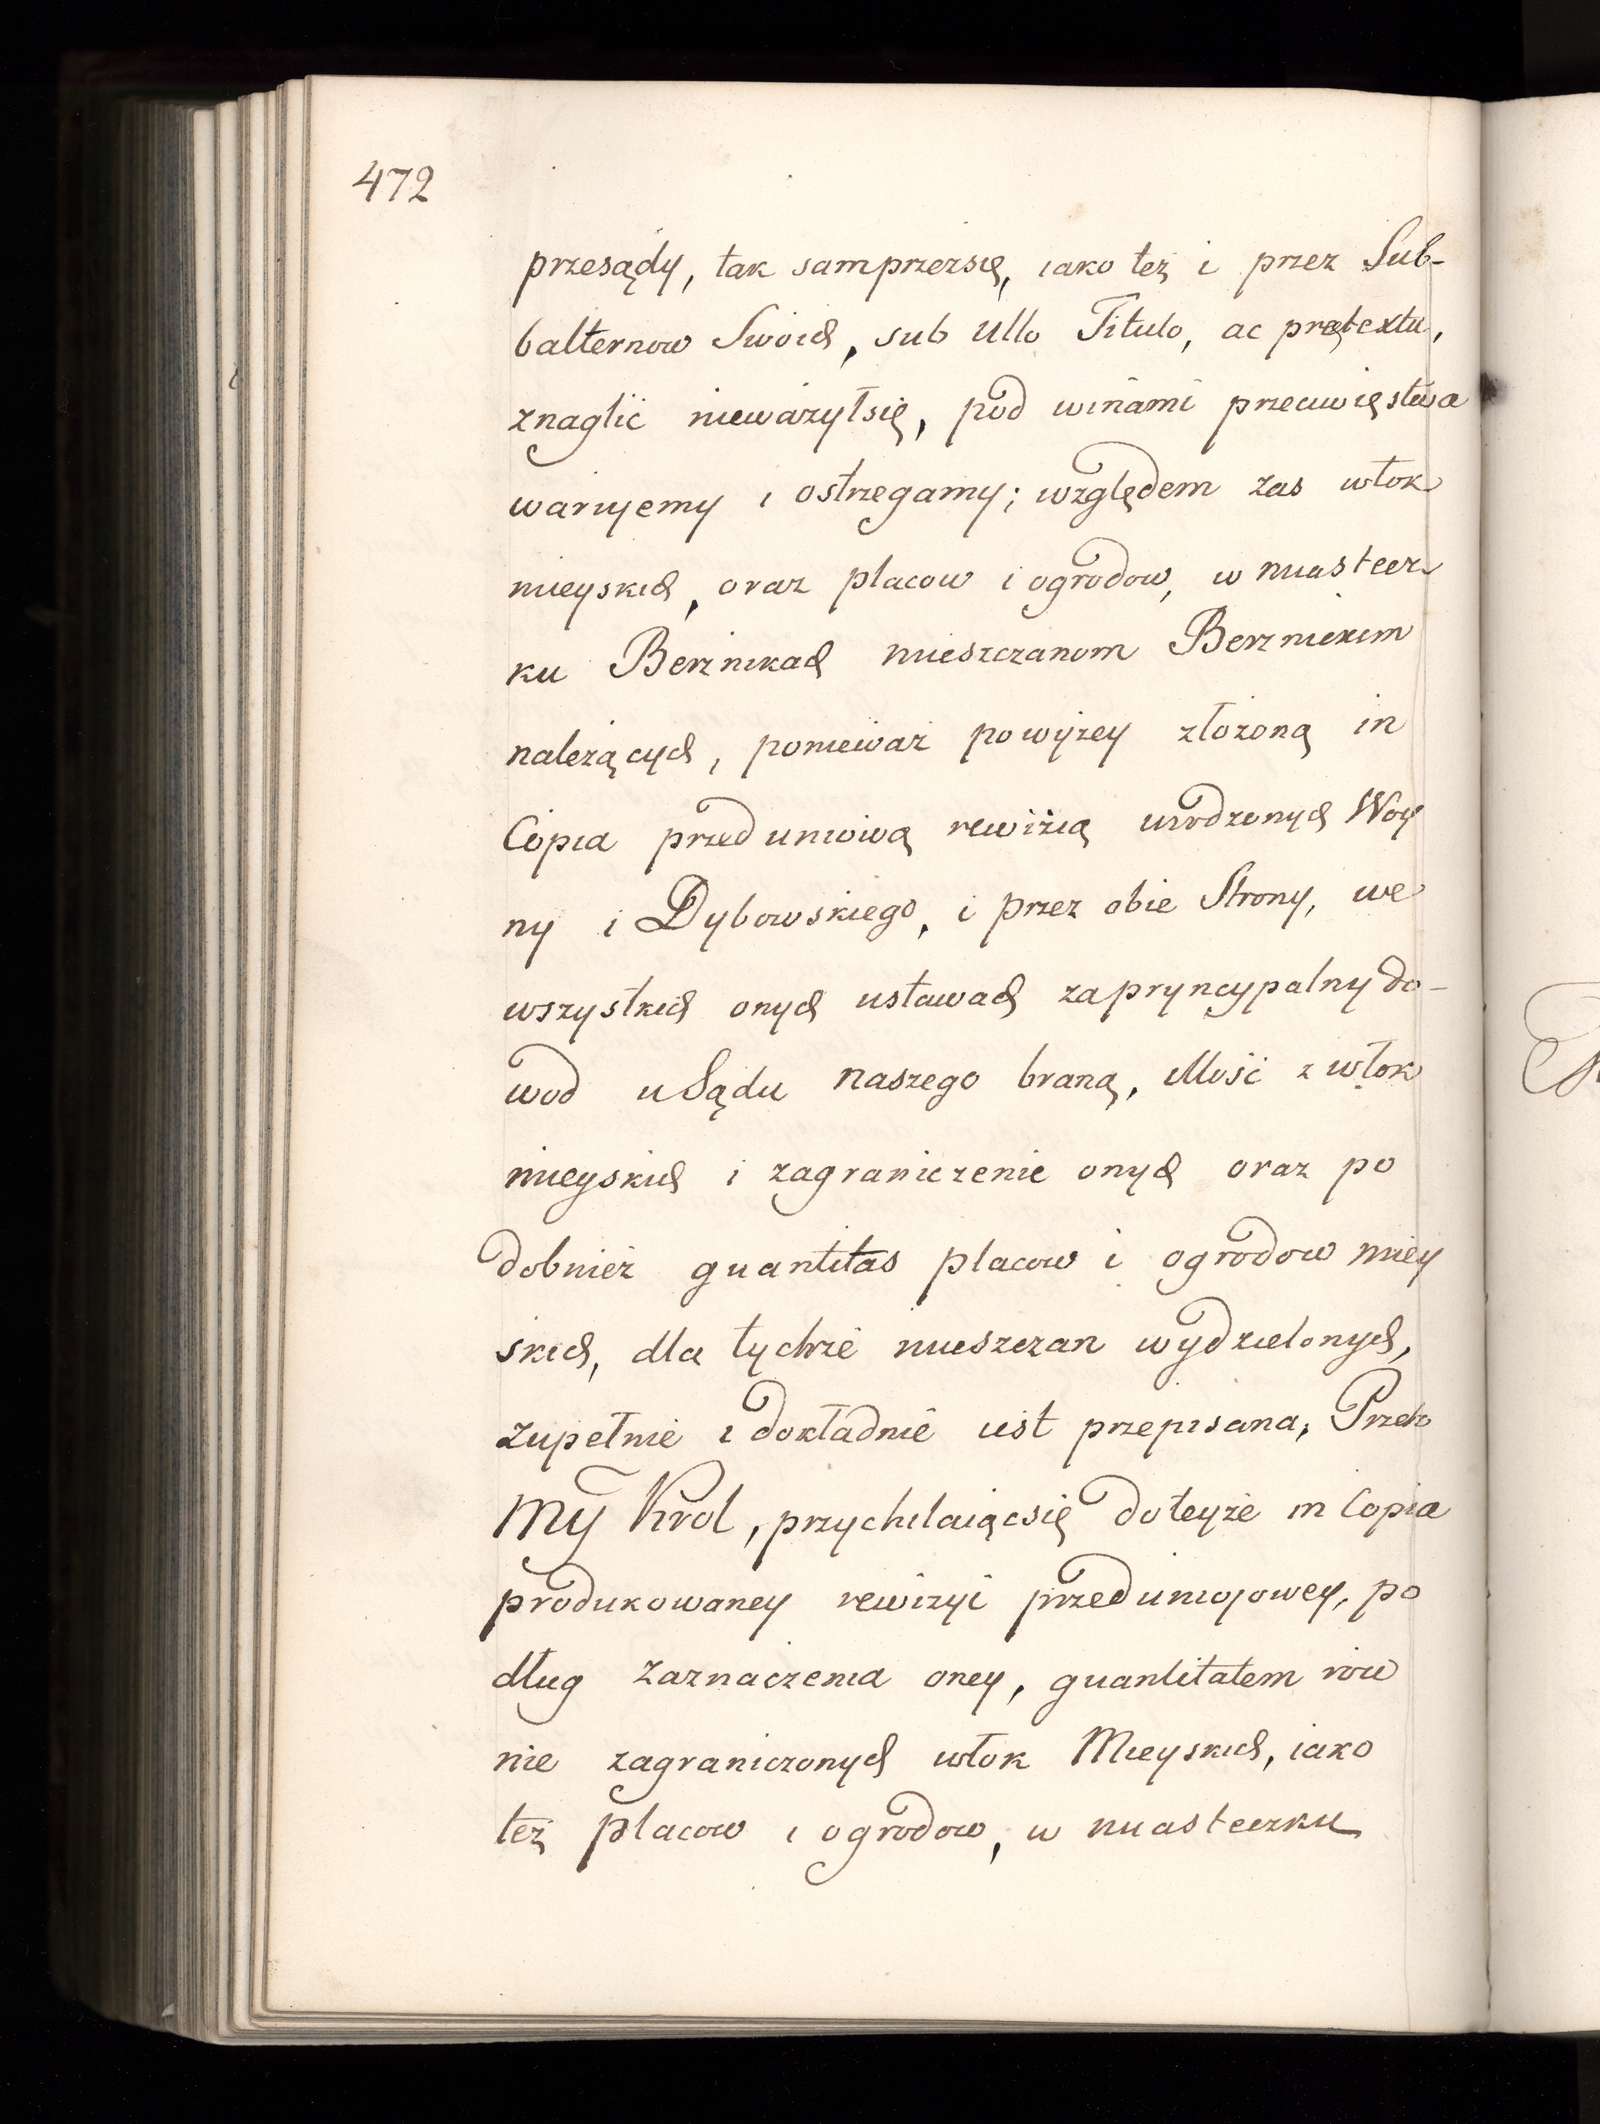 472
przesądy, tak samprzezsię, iako też i przez Sub-
balternow Swoich, sub Ullo Titulo, ac prętextu,
znaglić nieważyłsię, pod winami przeciwięstwa
waruyemy i ostrzegamy; względem zas włok
mieyskich, oraz placow i ogrodow, w miastecz
ku Berżnikach mieszczanom Berznickim
nalezących, ponieważ powyżey złożoną in
Copia przed uniową rewizią urodzonych Woy
ny i Dybowskiego, i przez obie Strony, we
wszystkich onych ustawach zapryncypalny do-
wod u Sądu naszego braną, Ilość z włok
mieyskich i zagraniczenie onych oraz po
dobnież quantitas placow i ogrodow miey
skich, dla tychże mieszczan wydzielonych,
zupełnie i dokładnie iest przepisana, Przeto
My Krol, przychilaiącsię do teyże in Copia
produkowaney rewizyi przed uniojowey, po
dług zaznaczenia oney, quantitatem row
nie zagraniczonych włok Mieyskich, iako
też placow i ogrodow, w miasteczku